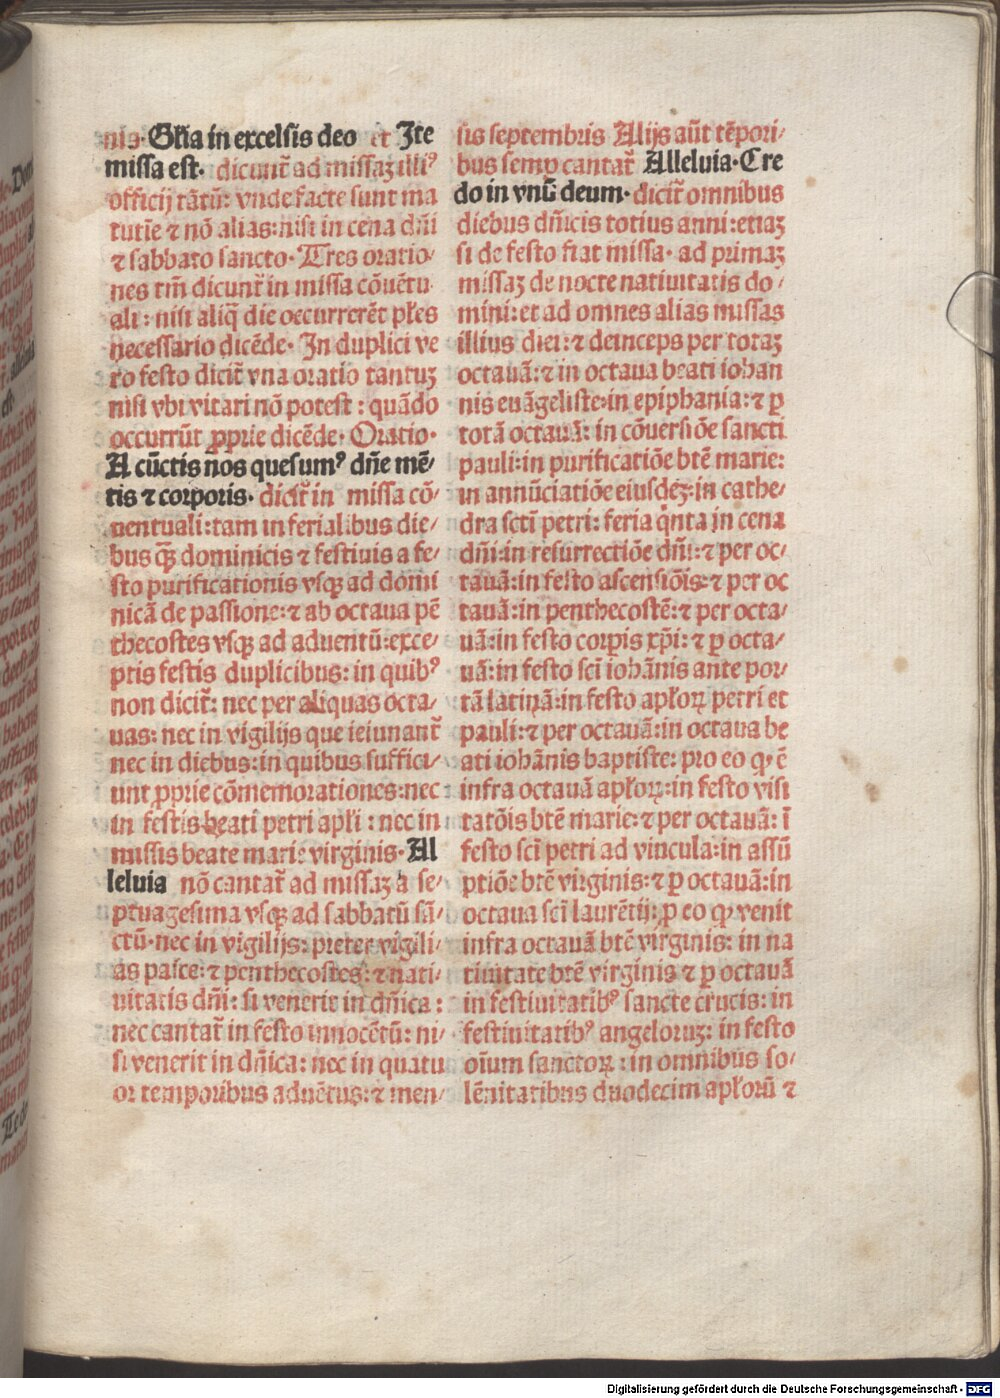 nis. Gl̃ia in excelsis deo et Ite
missa est. dicunt᷑ ad missaꝫ illiꝰ
officij tãtũ: vnde facte sunt ma
tutĩe ⁊ nõ alias: nisi in cena dñi
⁊ sabbato sancto. Tres oratio/
nes tm̃ dicunt᷑ in missa cõuẽtu
ali: nisi aliq̃ die occurrerẽt pl̃es
necessario dicẽde. In duplici ve
ro festo dicit᷑ vna oratio tantuꝫ
nisi vbi vitari nõ potest: quãdo
occurrũt ꝓprie dicẽde. Oratio.
A cũctis nos quesumꝰ dñe mẽ/
tis ⁊ corporis. dicit᷑ in missa cõ/
uentuali: tam in ferialibus die/
bus qꝫ̃ dominicis ⁊ festiuis a fe/
sto purificationis vsqꝫ ad domi
nicã de passione: ⁊ ab octaua pẽ
thecostes vsqꝫ ad aduentũ: exce/
ptis festis duplicibus: in quibꝰ
non dicit᷑: nec per aliquas octa/
uas: nec in vigilijs que ieiunant᷑
nec in diebus: in quibus suffici/
unt ꝓprie cõmemorationes: nec
in festis beati petri apl̃i: nec in
missis beate marie virginis. Al
leluia nõ cantat᷑ ad missaꝫ a se/
ptuagesima vsqꝫ ad sabbatũ sã/
ctũ. nec in vigilijs: preter vigili/
as pasce: ⁊ penthecostes: ⁊ nati/
uitatis dñi: si venerit in dñica:
nec cantat᷑ in festo innocẽtũ: ni/
si venerit in dñica: nec in quatu
or temporibus aduẽtus: ⁊ men/
sis septembris Alijs aũt tẽpori/
bus semꝑ cantat᷑ Alleluia. Cre
do in vnũ deum. dicit᷑ omnibus
diebus dñicis totius anni: etiaꝫ
si de festo fiat missa. ad primaꝫ
missaꝫ de nocte natiuitatis do/
mini: et ad omnes alias missas
illius diei: ⁊ deinceps per totaꝫ
octauã: ⁊ in octaua beati iohan
nis euãgeliste: in epiphania: ⁊ ꝑ
totã octauã: in cõuersiõe sancti
pauli: in purificatiõe btẽ marie:
in annũciatiõe eiusdeꝫ: in cathe/
dra scti petri: feria qͥnta in cena
dñi: in resurrectiõe dñi: ⁊ per oc/
tauã: in festo ascensiõis: ⁊ per oc
tauã: in penthecostẽ: ⁊ per octa/
uã: in festo corꝑis xp̃i: ⁊ ꝑ octa/
uã: in festo sci iohãnis ante por/
tã latinã: in festo apl̃oꝝ petri et
pauli: ⁊ per octauã: in octaua be
ati iohãnis baptiste: pro eo ꝙ ẽ
infra octauã apl̃oꝝ: in festo visi
tatõis btẽ marie: ⁊ per octauã: ĩ
festo sci petri ad vincula: in assũ
ptiõe btẽ virginis: ⁊ ꝑ octauã: in
octaua sci laurẽtij: ꝓ eo ꝙ venit
infra octauã btẽ virginis: in na
tiuitate btẽ virginis ⁊ ꝑ octauã
in festiuitatibꝰ sancte crucis: in
festiuitatibꝰ angeloruꝫ: in festo
oĩum sanctoꝝ: in omnibus so/
lẽnitatibus duodecim apl̃orũ ⁊
Digitalisierung gefördert durch die Deutsche Forschungsgemeinschaft - DFG